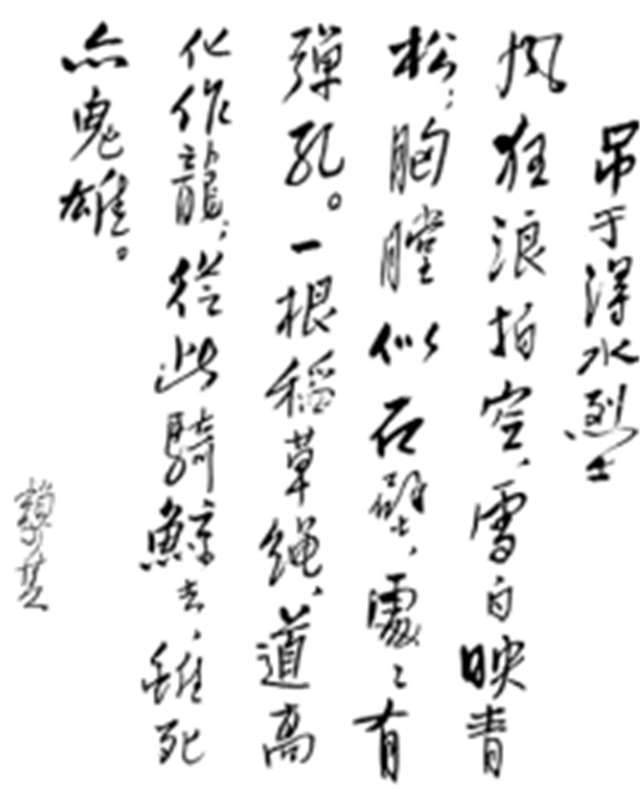 吊于得水烈士
风狂浪拍空,雪白映青
松;胸膛似石壁,處々有
彈孔。一根稻草绳,道高
化作龍;從此騎鯨去,雖死
亦鬼雄。